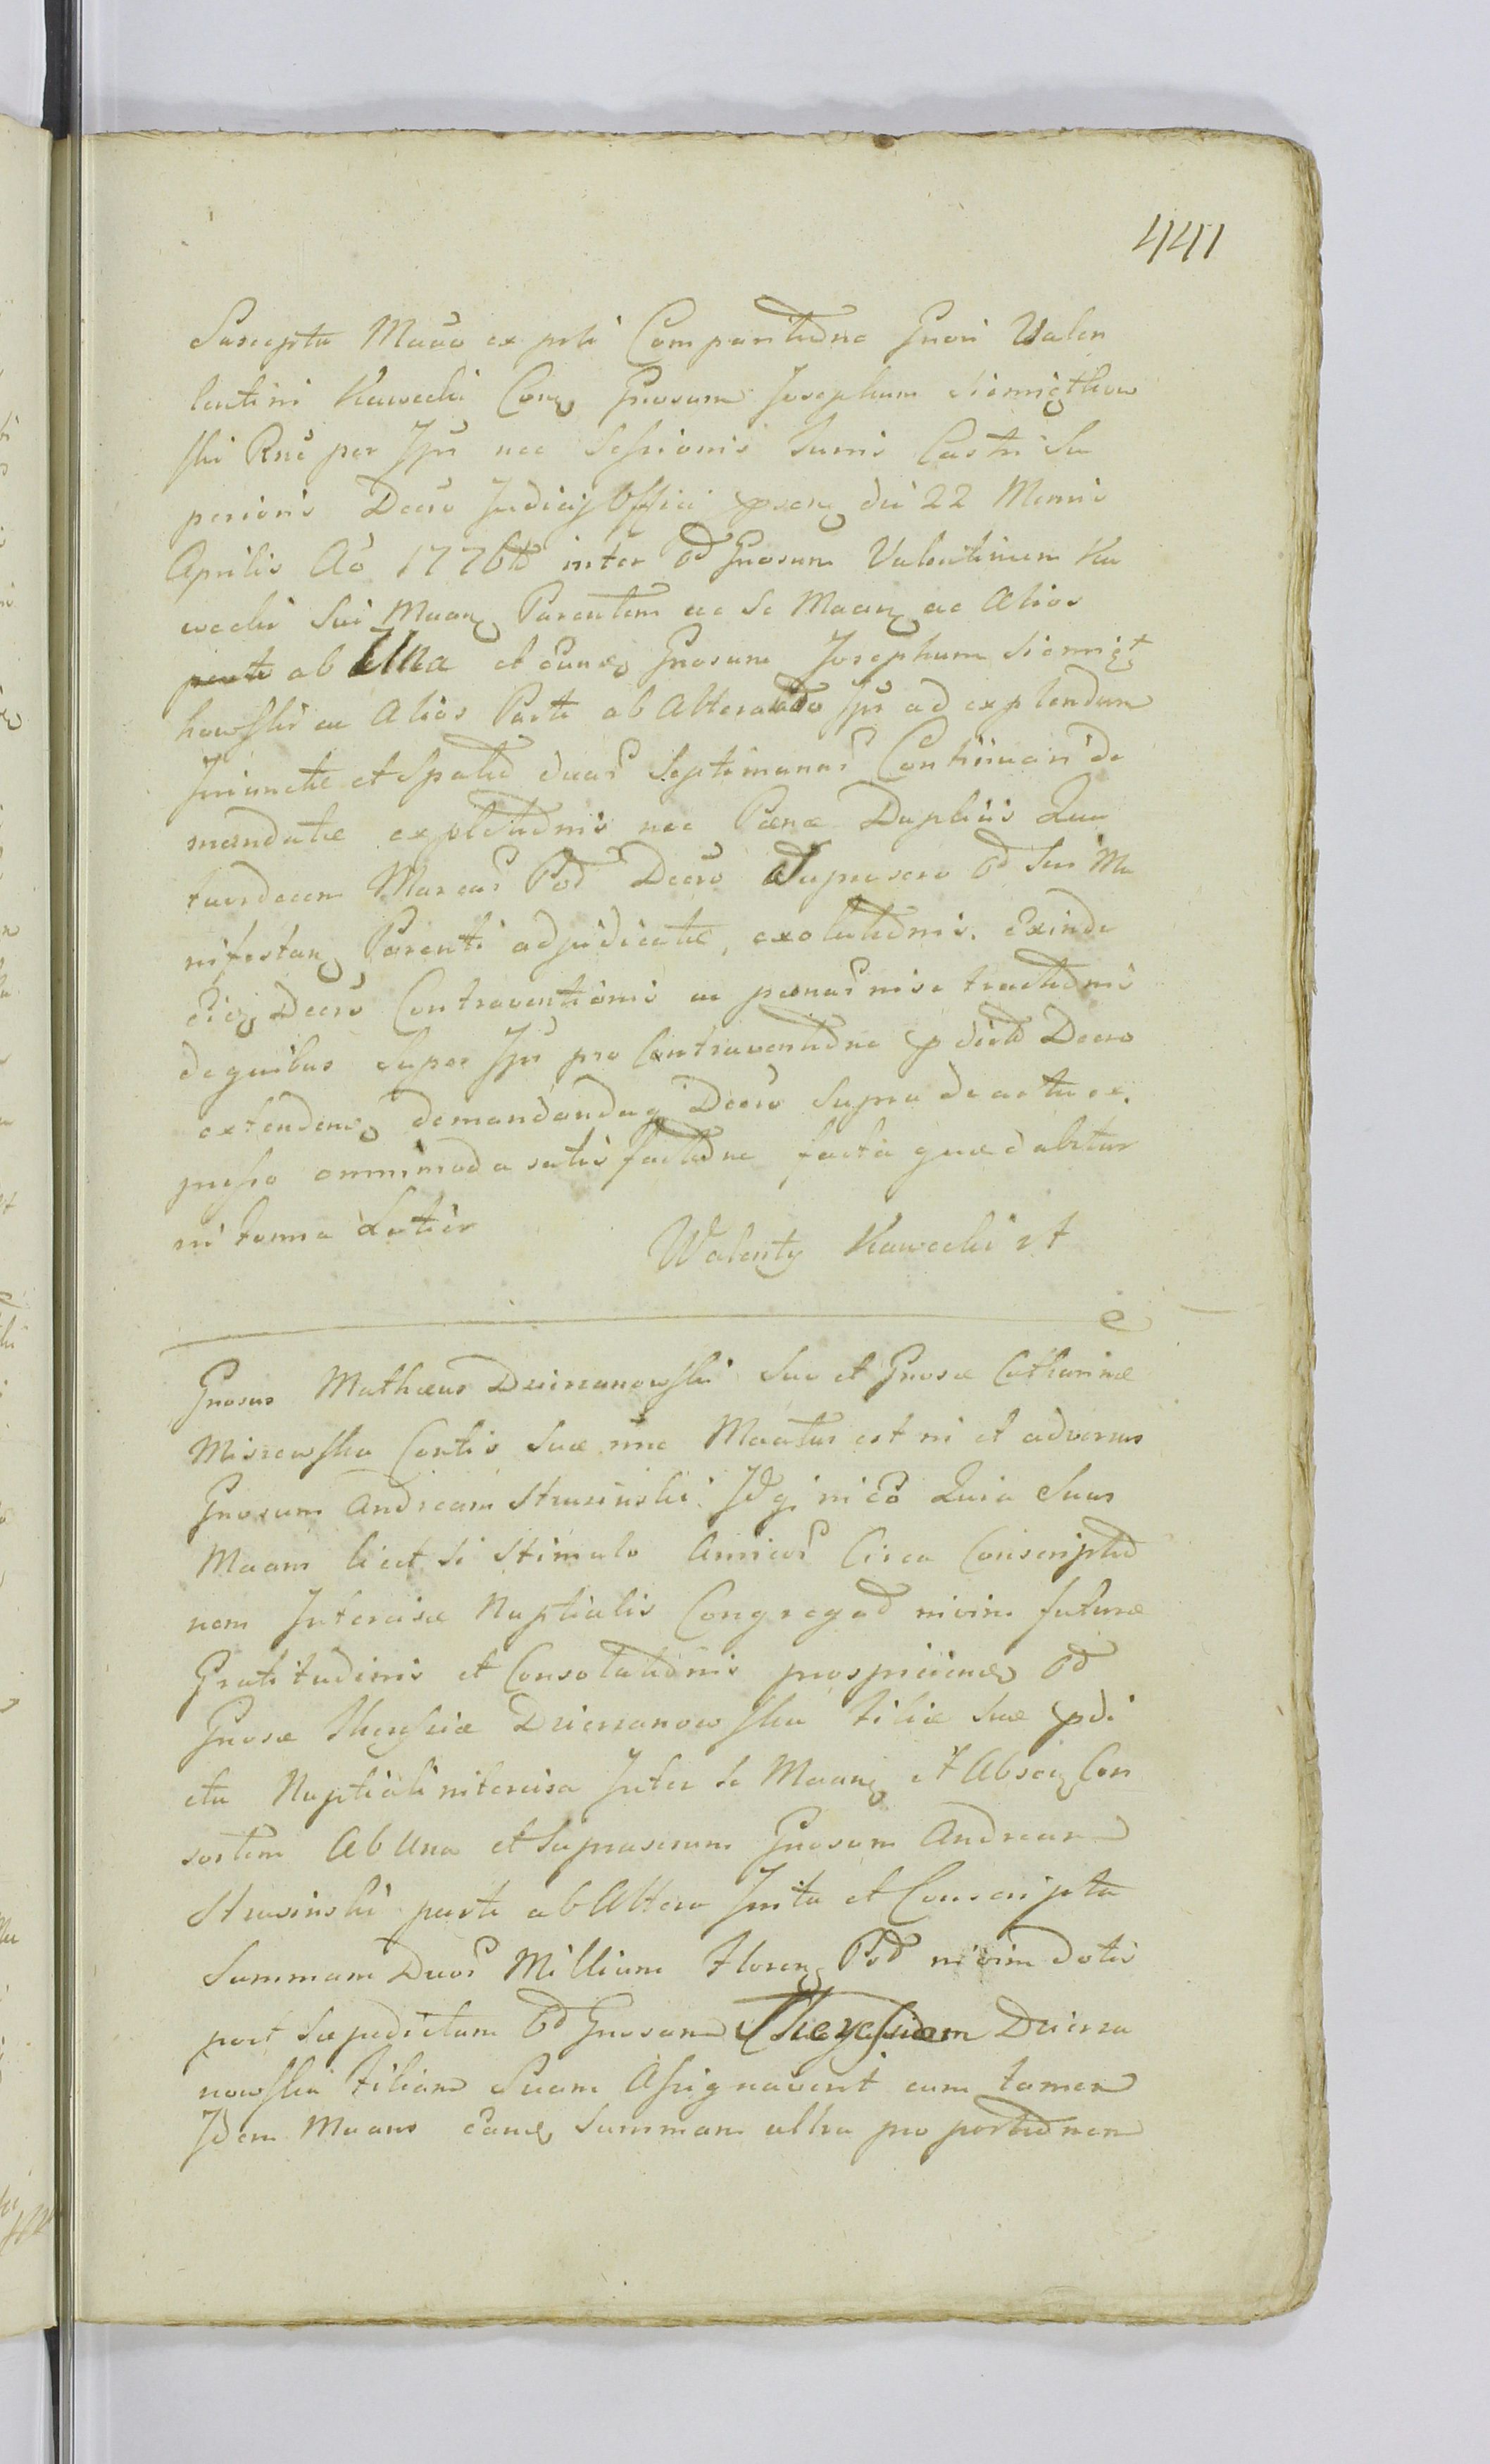 441
Suscepta Maõo ex prti Comparitione Gnõri Valen
lentini Kawecki Conq Gnosum Josephum Siemigthow
ski Rne per Jpr nec Sessionis Turris Castri Su
perioris Decro Judicij Offici pñserq die 22 Mensis
Aprilis Aõ 1776to inter Gnosum Valentinum Ka
wecki Sui Maanq Parentem ac Se Maanq ac Alios
parte ab Una et eunq Gnosum Josephum Siemigt
kowski ac Alios Parte ab Altera Jpr ad explendum
Jniuncte et Spatio duar Septimanar Continuari de
mandatæ expletionis nec Pænæ Duplicis Qua
tuordecem Marcar Pol Decro Suprascro Sui Ma
nifestanq Parenti adjudicatæ, exolutionis. Exinde
Eiq Decro Contraventionis ac pænar nisa tractionis
de quibus super Jpr pro Contraventione pdicto Decro
extendenq demandanduq Decro Supra de actu ex,
presso omnimoda satis factione facta quæ dabitur
ni forma Latior
Walenty Kawecki rt
Gnosus Mathæus Dzierzanowski Suo et Gnosæ Catharinæ
Miszewska Contis Suæ nne Maatus est ni et adversus
Gnosum Andream Strusinski. Jdq ni eo Quia Suus
Maans licet si Stimulo Amicor Circa Conscriptio
nem Jntercisæ Nuptialis Congregat nivim futuræ
Gratitudinis et Consolationis prospicienq
Gnosæ Theresiæ Dzierzanowska filiæ Suæ pdi
cta Nuptiali nitercisa Jnter Se Maanq et Absciq Con
sortem Ab Una et Suprascrum Gnosum Andream
Strusinski parte ab Altera Jnita et Conscripta
Summam Duor Millium Florenq Pol nivim dotis
post Sæpedictam Gnosam Theresiam Dzierza
nowska filiam Suam Assignaverit cum tamen
Jdem Maans eanq Summam ultra proportionem